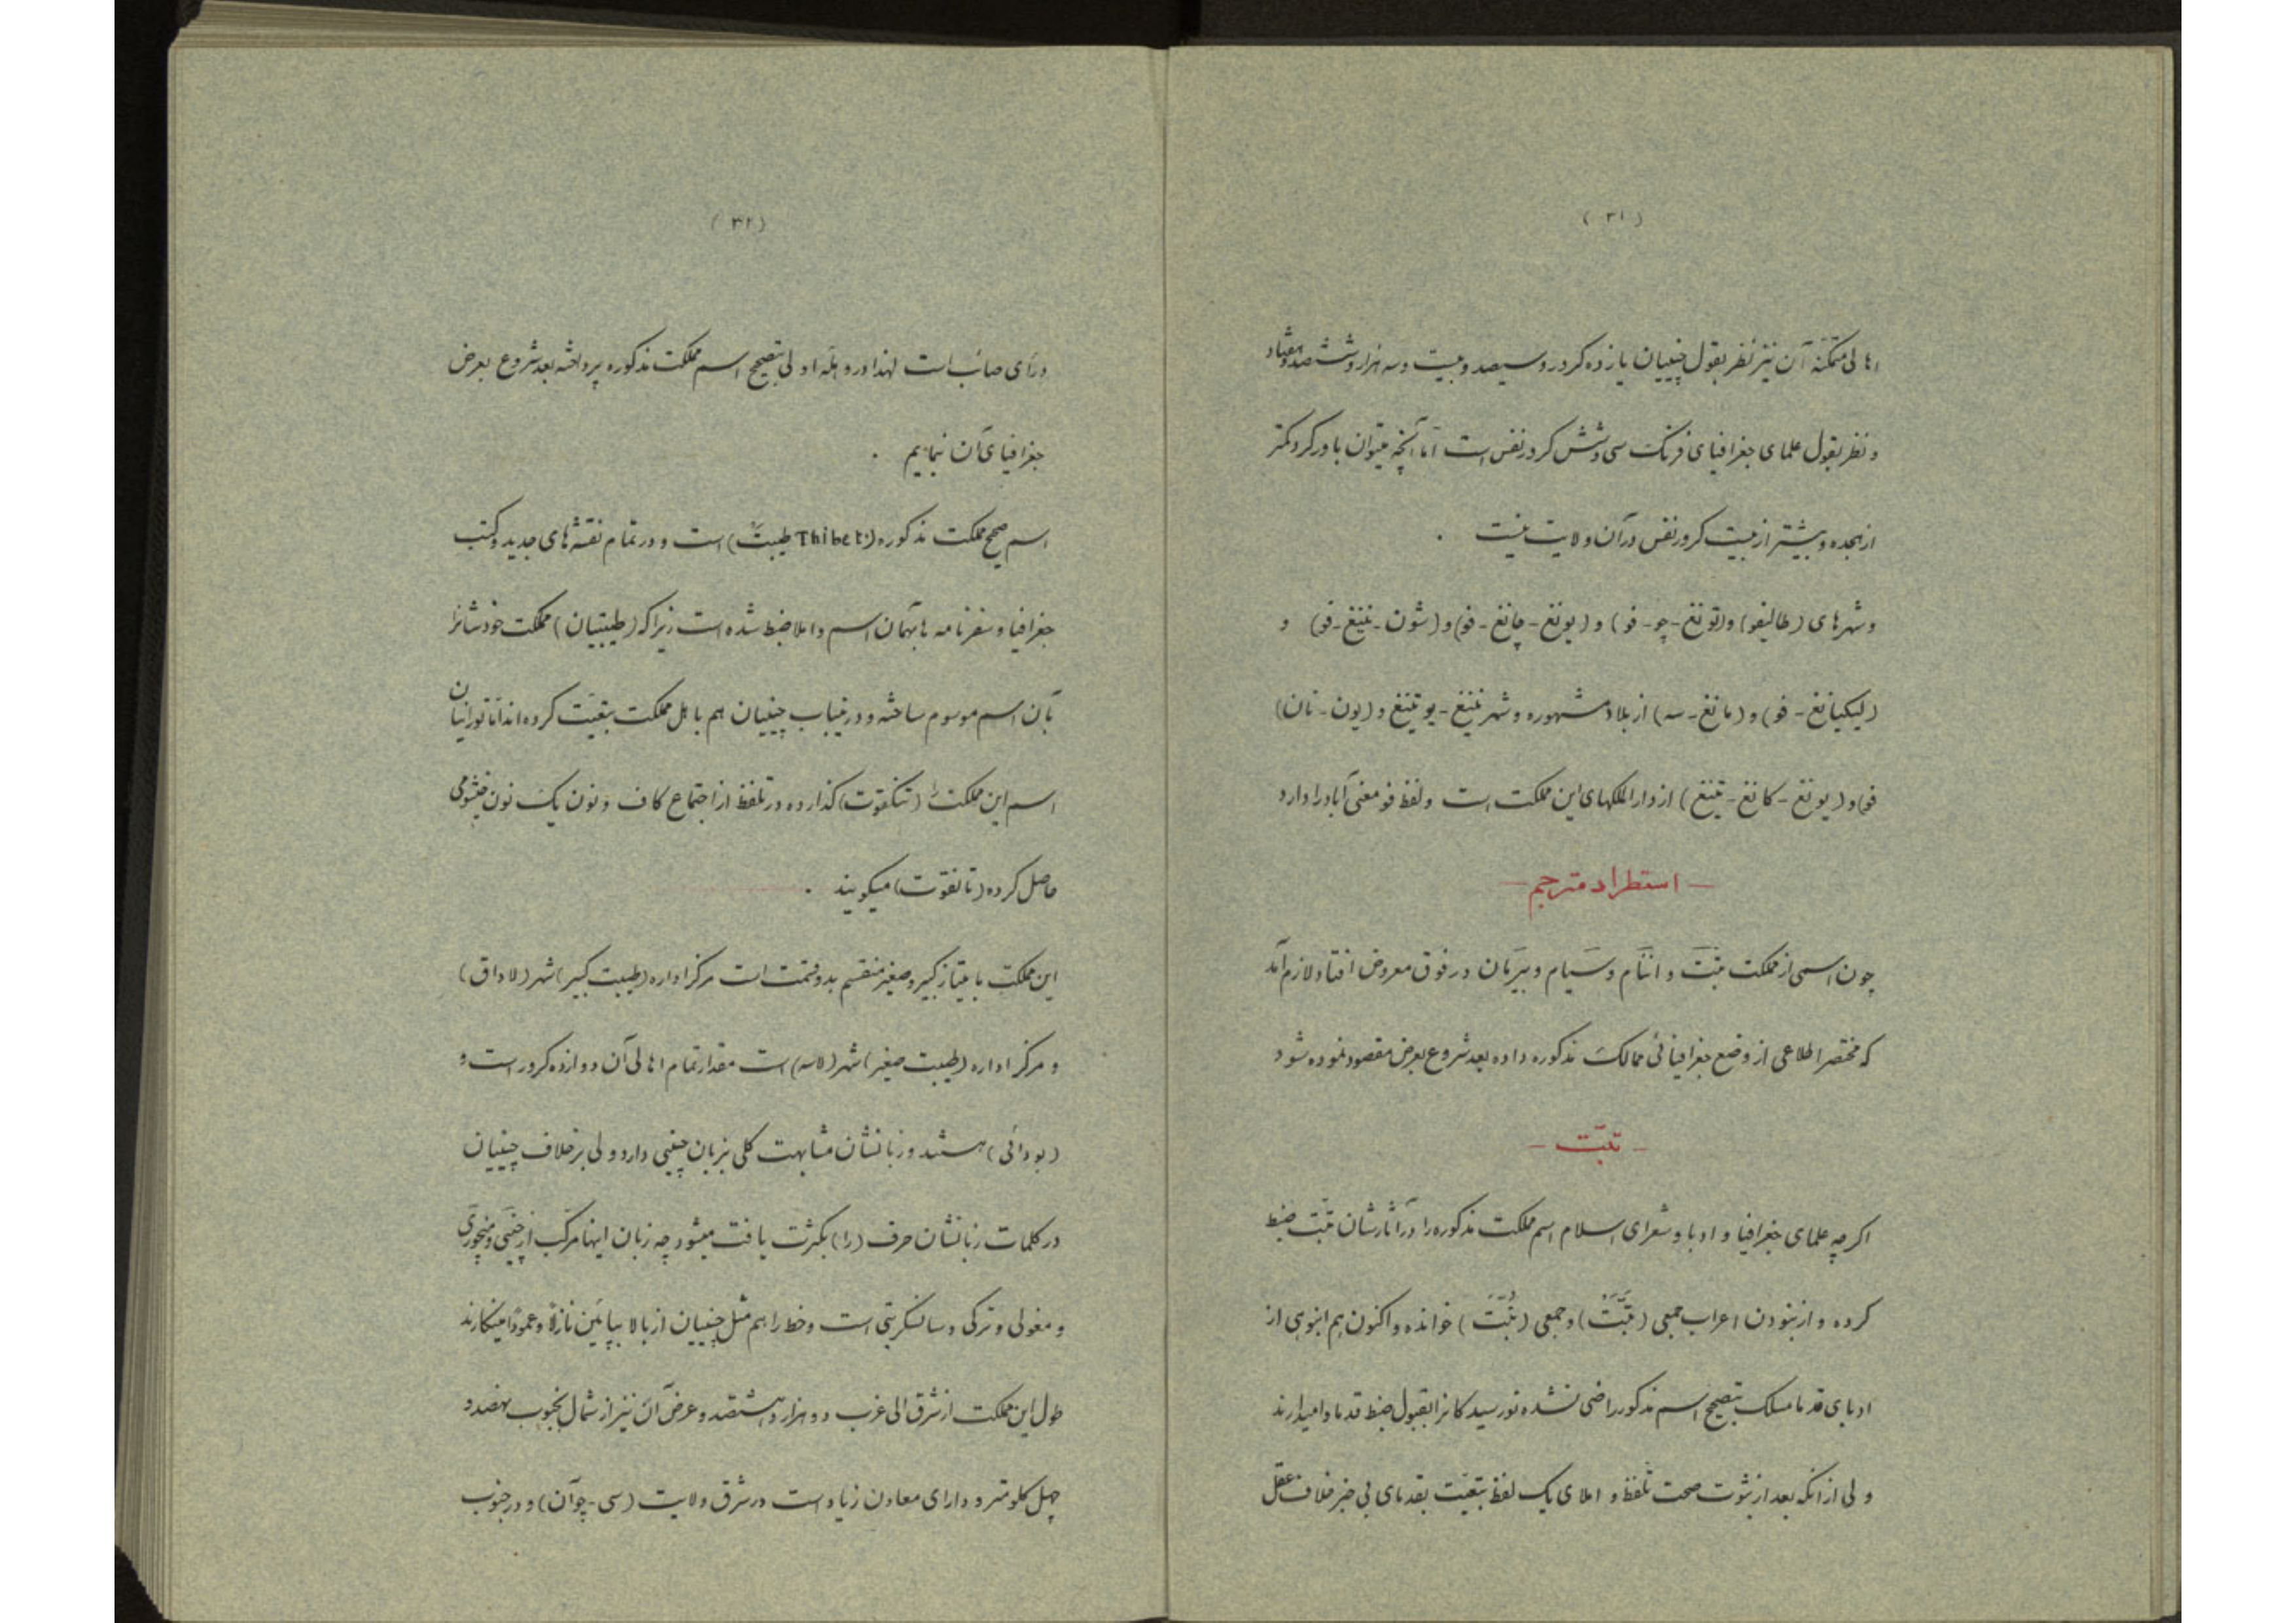 ( ۳۱ )
اهالی متمکنهٔ آن نیز نظر بقول چینیان یازده کرور و سیصد و بیست و سه هزار و ششصد و هفتاد
و نظر بقول علمای جغرافیای فرنگ سی و شش کرور نفس است اما آنچه میتوان باور کرد کمتر
از هجده و بیشتر از بیست کرور نفس در آن ولایت نیست .
و شهرهای (طالیفو) و (تونغ-چو-فو) و (یونغ-چانغ-فو) و (شون-نینغ-فو) و
(لیکیانغ-فو) و (مانغ-سه) از بلاد مشهوره و شهر نینغ-یو تینغ و (یون-نان)
فو) و (یونغ-کانغ-تینغ) از دارالملکهای این مملکت است و لفظ فو معنی آباد را دارد
— استطراد مترجم —
چون اسمی از مملکت تبّت و انّنام و سَیام و بیرَمان در فوق معروض افتاد لازم آمد
که مختصر اطلاعی از وضع جغرافیائی ممالک مذکوره داده بعد شروع بعرض مقصود نموده شود
— تبّت —
اکرچه علمای جغرافیا و ادبا و شعرای اسلام اسم مملکت مذکوره را در آثارشان تبّت ضبط
کرده و از نبودن اعراب جمعی (تَبَّتْ) و جمعی (تُبَّتَ) خوانده و اکنون هم انبوهی از
ادبای قدما مسلک بتصحیح اسم مذکور راضی نشده نورسیدکانرا بقبول ضبط قدما وامیدارند
ولی از آنکه بعد از ثبوت صحت تلفظ و املای یک لفظ بتبعیّت بقدمای بی خبر خلاف عقل
( ۳۲ )
ورأی صائب است لهذا در وهلهٔ اولی بتصحیح اسم مملکت مذکوره پرداخته بعد شروع بعرض
جغرافیای آن نمائیم .
اسم صحیح مملکت مذکوره (Thibet: طیبتّ) است و در تمام نقشه‌های جدید و کتب
جغرافیا و سفرنامه ها بهمان اسم و املا ضبط شده است زیرا که (طیبتیان) مملکت خودشانرا
بآن اسم موسوم ساخته و در غیاب چینیان هم باهل مملکت بتبعیّت کرده اند اما تورانیان
اسم این مملکت را (تنکقوت) کذارده و در تلفظ از اجتماع کاف و نون یک نون خیشومی
حاصل کرده (تانغوّت) میکویند .
این مملکت بامتیاز کبیر و صغیر منقسم بدو قسمت است مرکز اداره (طیبت کبیر) شهر (لاداق)
و مرکز اداره (طیبت صغیر) شهر (لاسه) است مقدار تمام اهالی آن دوازده کرور است و
(بودائی) هستند و زبانشان مشابهت کلی بزبان چینی دارد ولی برخلاف چینیان
در کلمات زبانشان حرف (را) بکثرت یافت میشود چه زبان اینها مرکّب از چینی و منچوری
و مغولی و ترکی و سانسکریتی است و خط را هم مثل چینیان از بالا بپائین نازلاً و عموداً مینکارند
طول این مملکت از شرق الی غرب دو هزار و هشتصد و عرض آن نیز از شمال بجنوب نهصد و
چهل کلومتر و دارای معادن زیاد است در شرق ولایت (سی-چوآن) و در جنوب